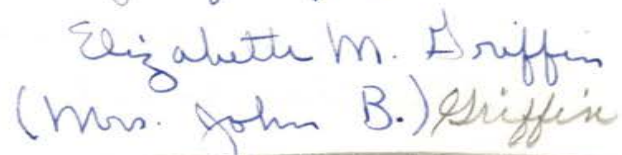 Elizabeth M. Griffin
(Mrs. John B.) Griffin